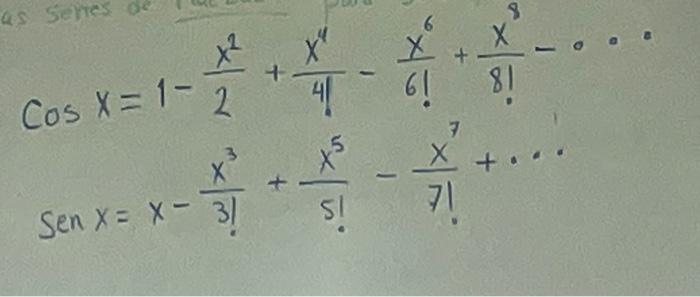 as series de
Cos x = 1 - x²/2 + x⁴/4! - x⁶/6! + x⁸/8! - ....
Sen x = x - x³/3! + x⁵/5! - x⁷/7! + ...